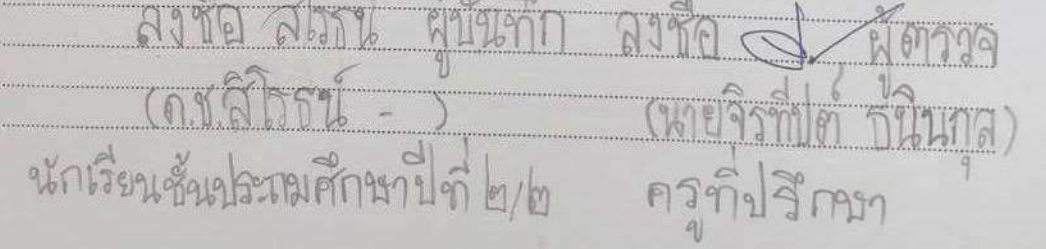 ลงชื่อ สิโรธน์ ผู้บันทึก ลงชื่อ ผู้ตรวจ
(ด.ช.สิโรธน์ - ) (นายจิรทีปต์ ธนินกุล)
นักเรียนชั้นประถมศึกษาปีที่ ๒/๒ ครูที่ปรึกษา